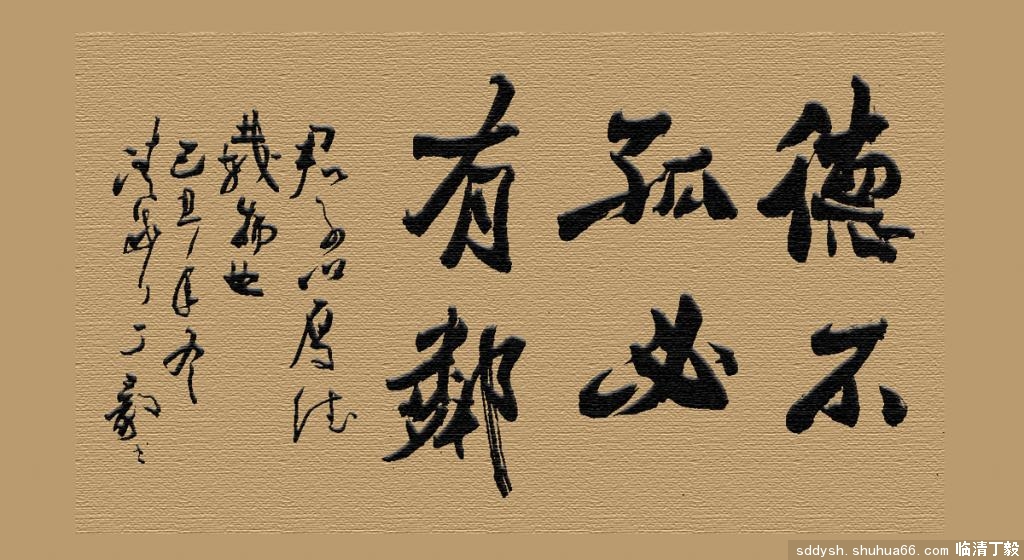 德不
孤必
有鄰
君子以厚德
載物也
己丑年冬
丁毅
sddysh.shuhua66.com 临清丁毅